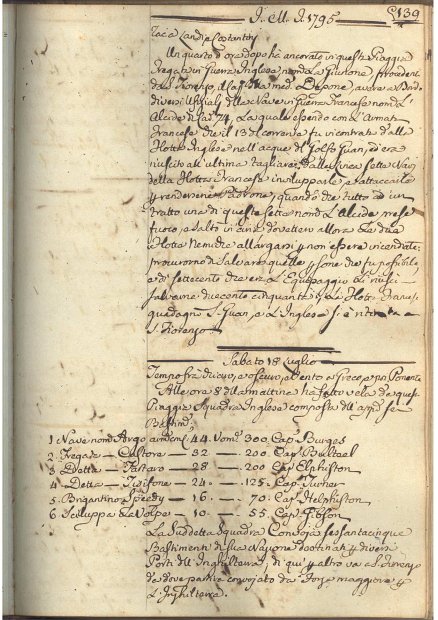 J. M. J. 1795
139
Zaca Landi e Costantini
Un quarto d'ora dopo ha ancorato in questa Piaggia
Fregata in Guerra Inglese nom.
da S. Fiorenzo
avere a Bordo
diversi Uffiziali della Nave in Guerra Francese nom. L'
Alcide di Can. 74, La quale essendo con L'Armata
Francese che il 13 Corrente fu incontrata dalla
Flotta Inglese nell'acque di Golfo Juan, ed era
riuscito all'ultima tagliare dalla Linea sette Navi
della Flotta Francese invilupparle, e attaccarle
e rendersene Padrone, quando che tutto ad un
tratto una di queste sette nom. L'Alcide prese
fuoco, e saltò in aria dovettero allora Le due
Flotte Nemiche allargarsi p non essere incendiate
procurorno di Salvare quelle persone che fu possibile
e di settecento che era L'Equipaggio L'
salvarne duecento cinquanta La Flotta Francese
guadagnò S. Juan, e L'Inglese si è ritirata a
S. Fiorenzo
Sabato 18 Luglio
Tempo fra chiaro, e oscuro, e vento a Greco, e poi Ponente
Alle ore 8 di mattina ha fatto vela da questa
Piaggia Squadra Inglese composta dell'app. se
Bastim.
1 Nave nom. Argo can. 44. Uom. 300. Cap. Burges
2 Fregata Castore 32 200. Cap.
3 Detta Tartaro 28 200 Cap. Elphiston
4 Detta Tisifone 24 125. Cap. Turner
5 Brigantino Speedy 16 70. Cap.
6 Scialuppa La Volpe 10 55. Cap. Gibson
La Suddetta Squadra Convoja sessantacinque
Bastimenti di sua Nazione destinati p diversi
Porti dell'Inghilterra, di qui p altro va a S. Fiorenzo
da dove partirà convojato da Forza maggiore p
L'Inghilterra.